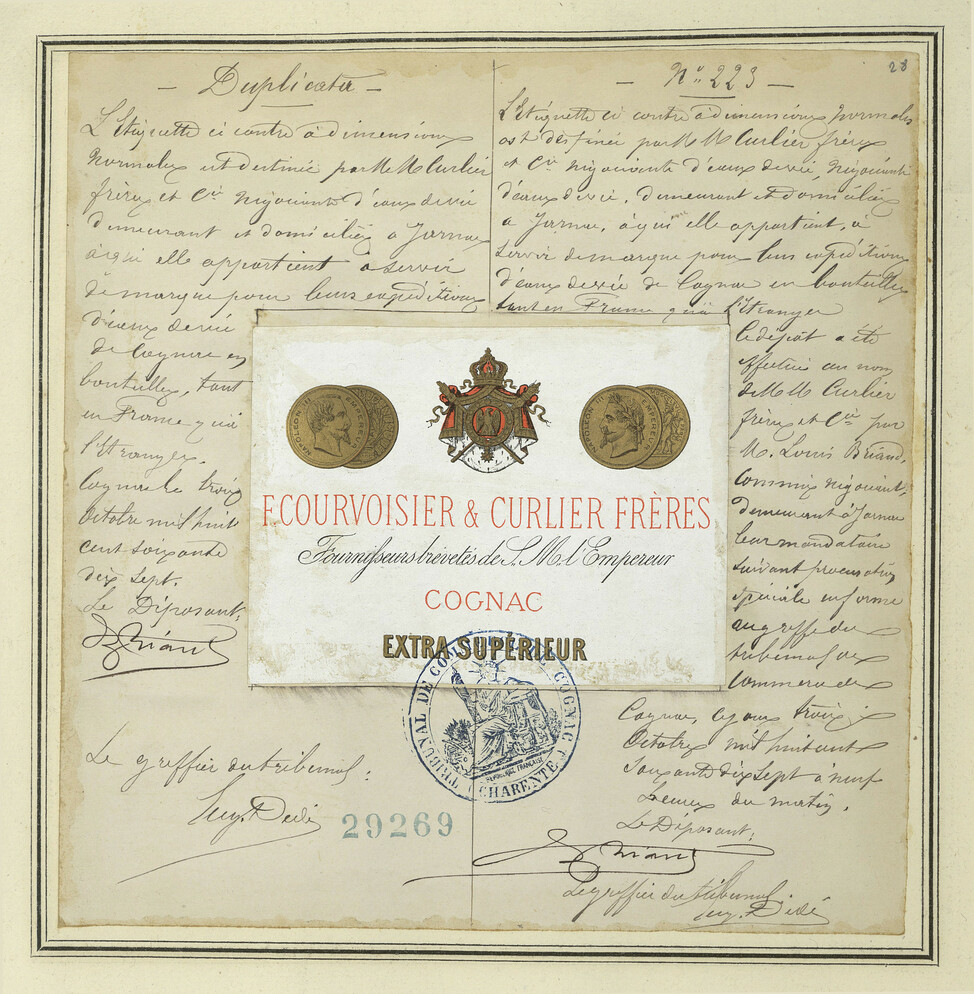 - Duplicata -
L'Etiquette ci contre à dimensions
normales est destinée par M M Curlier
frères et Cie Négociants d'eaux de vie
demeurant et domiciliés à Jarnac
à qui elle appartient à servir
de marque pour leurs expéditions
d'eaux de vie
de Cognac en
bouteilles, tant
en France qu'à
l'Etranger.
Cognac le trois
Octobre mil huit
cent soixante
dix sept.
Le Déposant,
Le greffier du tribunal:
29269
- No 223 -
28
L'Etiquette ci contre à dimensions normales
est destinée par M M Curlier frères
et Cie Négociants d'eaux de vie, Négociants
d'eaux de vie, demeurant et domiciliés
à Jarnac, à qui elle appartient, à
servir de marque pour leurs expéditions
d'eaux de vie de Cognac en bouteilles
tant en France qu'à l'Etranger
Le dépôt a été
effectué au nom
de M M Curlier
frères et Cie par
M. Louis Briand,
Commis négociant,
demeurant à Jarnac
leur mandataire
suivant procuration
spéciale en forme
au greffe du
tribunal de
Commerce de
Cognac, ce jour trois
Octobre mil huit cent
soixante dix sept à neuf
heures du matin.
Le Déposant:
Le greffier du tribunal,
NAPOLEON III EMPEREUR
NAPOLEON III EMPEREUR
F. COURVOISIER & CURLIER FRÈRES
Fournisseurs brevetés de S. M. l'Empereur
COGNAC
EXTRA SUPÉRIEUR
TRIBUNAL DE COMMERCE DE COGNAC
(CHARENTE)
RÉPUBLIQUE FRANÇAISE